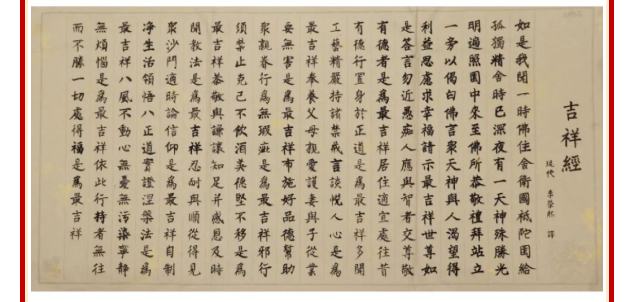 吉祥經
現代 李榮熙 譯
如是我聞一時佛住舍衛國祇陀園給
孤獨精舍時已深夜有一天神殊勝光
明遍照園中來至佛所恭敬禮拜站立
一旁以偈白佛言眾天神與人渴望得
利益思慮求幸福請示最吉祥世尊如
是答言勿近愚痴人應與智者交尊敬
有德者是為最吉祥居住適宜處往昔
有德行置身於正道是為最吉祥多聞
工藝精嚴持諸禁戒言談悅人心是為
最吉祥奉養父母親愛護妻與子從業
要無害是為最吉祥布施好品德幫助
眾親眷行為無瑕疵是為最吉祥邪行
須禁止克己不飲酒美德堅不移是為
最吉祥恭敬與謙讓知足並感恩及時
聞教法是為最吉祥忍耐與順從得見
眾沙門適時論信仰是為最吉祥自制
淨生活領悟八正道實證涅槃法是為
最吉祥八風不動心無憂無污染寧靜
無煩惱是為最吉祥依此行持者無往
而不勝一切處得福是為最吉祥